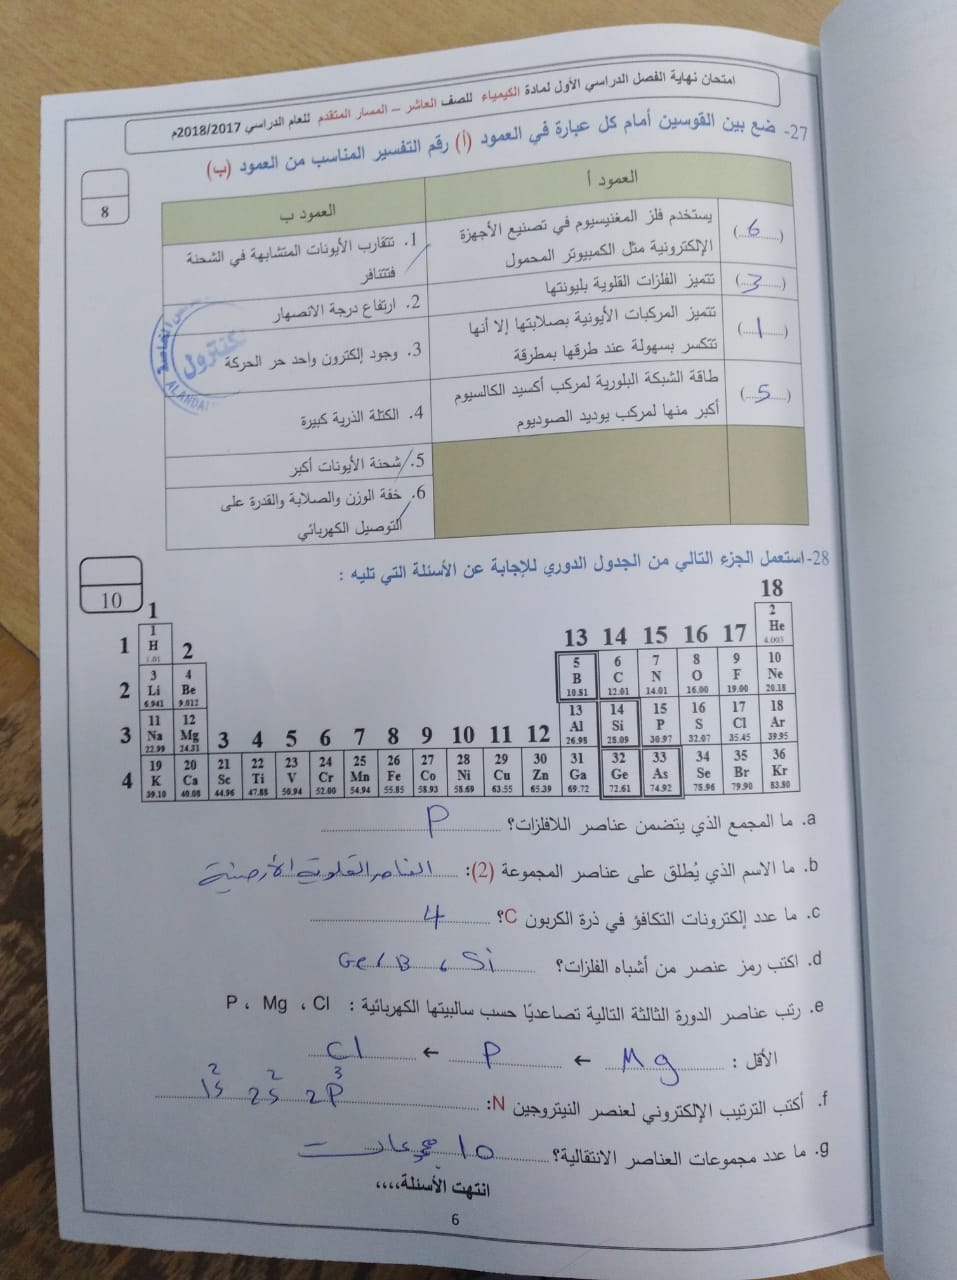 امتحان نهاية الفصل الدراسي الأول لمادة الكيمياء للصف العاشر – المسار المتقدم للعام الدراسي 2018/2017م
27- ضع بين القوسين أمام كل عبارة في العمود (أ) رقم التفسير المناسب من العمود (ب)
8
العمود أ
العمود ب
(6) يستخدم فلز المغنيسيوم في تصنيع الأجهزة
الإلكترونية مثل الكمبيوتر المحمول
(3) تتميز الفلزات القلوية بليونتها
(1) تتميز المركبات الأيونية بصلابتها إلا أنها
تتكسر بسهولة عند طرقها بمطرقة
(5) طاقة الشبكة البلورية لمركب أكسيد الكالسيوم
أكبر منها لمركب يوديد الصوديوم
1. تتقارب الأيونات المتشابهة في الشحنة
فتتنافر
2. ارتفاع درجة الانصهار
3. وجود إلكترون واحد حر الحركة
4. الكتلة الذرية كبيرة
5. شحنة الأيونات أكبر
6. خفة الوزن والصلابة والقدرة على
التوصيل الكهربائي
كنترول
ALANDAL
28- استعمل الجزء التالي من الجدول الدوري للإجابة عن الأسئلة التي تليه :
10
1 18
1 2
1 H He
1.01 4.003
2 13 14 15 16 17
3 4 5 6 7 8 9 10
2 Li Be B C N O F Ne
6.941 9.012 10.81 12.01 14.01 16.00 19.00 20.18
11 12 13 14 15 16 17 18
3 Na Mg 3 4 5 6 7 8 9 10 11 12 Al Si P S Cl Ar
22.99 24.31 26.98 28.09 30.97 32.07 35.45 39.95
19 20 21 22 23 24 25 26 27 28 29 30 31 32 33 34 35 36
4 K Ca Sc Ti V Cr Mn Fe Co Ni Cu Zn Ga Ge As Se Br Kr
39.10 40.08 44.96 47.88 50.94 52.00 54.94 55.85 58.93 58.69 63.55 65.39 69.72 72.61 74.92 78.96 79.90 83.80
a. ما المجمع الذي يتضمن عناصر اللافلزات؟ P
b. ما الاسم الذي يُطلق على عناصر المجموعة (2): العناصر القلوية الأرضية
c. ما عدد إلكترونات التكافؤ في ذرة الكربون C؟ 4
d. اكتب رمز عنصر من أشباه الفلزات؟ Si ، B ، Ge
e. رتب عناصر الدورة الثالثة التالية تصاعديًا حسب سالبيتها الكهربائية : P ، Mg ، Cl
الأقل : Mg ← P ← Cl
f. أكتب الترتيب الإلكتروني لعنصر النيتروجين N: 1s² 2s² 2p³
g. ما عدد مجموعات العناصر الانتقالية؟ 10 مجموعات
انتهت الأسئلة،،،،
6